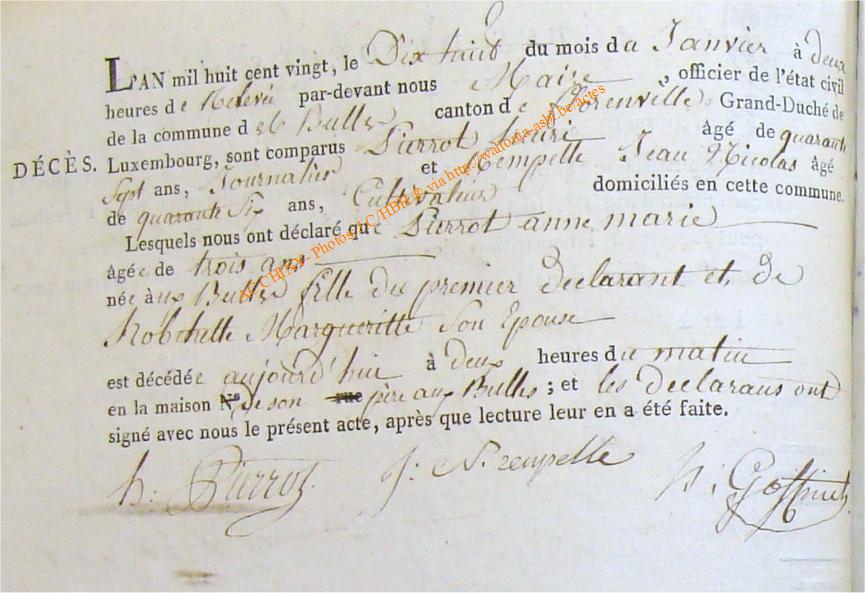 L'AN mil huit cent vingt, le Dix huit du mois du Janvier à deux
heures de Relevée par-devant nous Maire, officier de l'état civil
de la commune des Bulles canton de florenville Grand-Duché de
DÉCÈS. Luxembourg, sont comparus Pierrot henri âgé de quarante
Sept ans, Journalier et Rempelle Jean Nicolas âgé
de quarante Six ans, Cultivateur domiciliés en cette commune.
Lesquels nous ont déclaré que Pierrot anne marie
âgée de trois ans
née aux Bulles fille du premier declarant et de
Marguerite Son Epouse
est décédée aujourd'hui à deux heures du matin
en la maison N° de son rue père aux Bulles; et les declarans ont
signé avec nous le présent acte, après que lecture leur en a été faite.
h: Pierrot J: N. rempelle h: Goffinet
ARCHIVES- Photos LC/HBn © via http://wallonia-asbl.be/actes